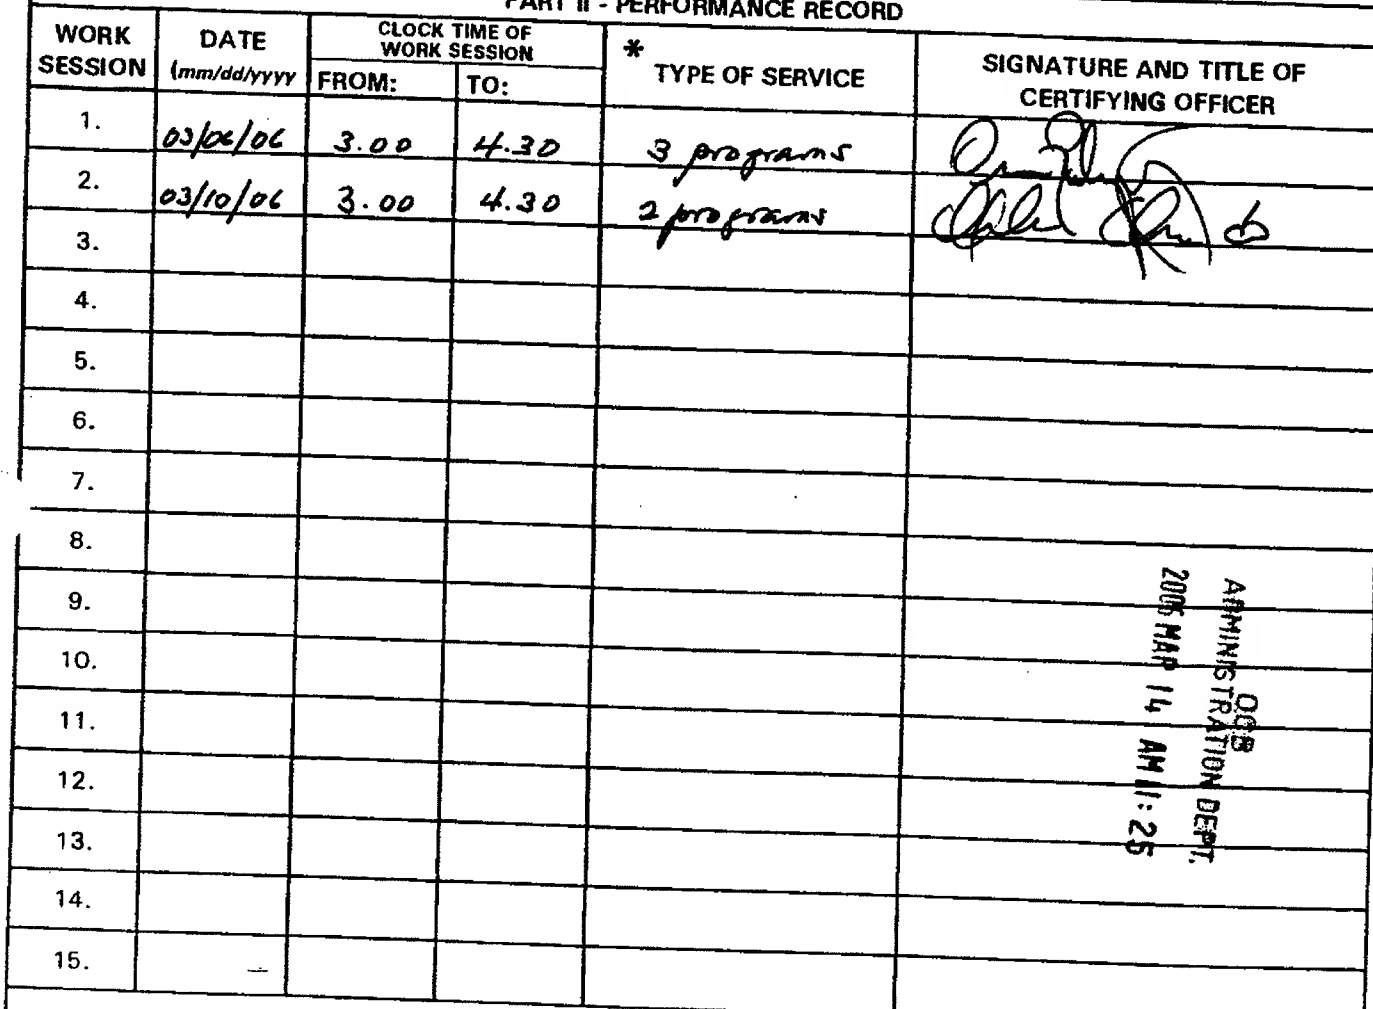 PART II - PERFORMANCE RECORD
WORK SESSION
DATE (mm/dd/yyyy
CLOCK TIME OF WORK SESSION
FROM:
TO:
* TYPE OF SERVICE
SIGNATURE AND TITLE OF CERTIFYING OFFICER
1. 03/06/06 3.00 4.30 3 programs
2. 03/10/06 3.00 4.30 2 programs
3.
4.
5.
6.
7.
8.
9.
10.
11.
12.
13.
14.
15.
OCB
ADMINISTRATION DEPT.
2006 MAR 14 AM 11:25